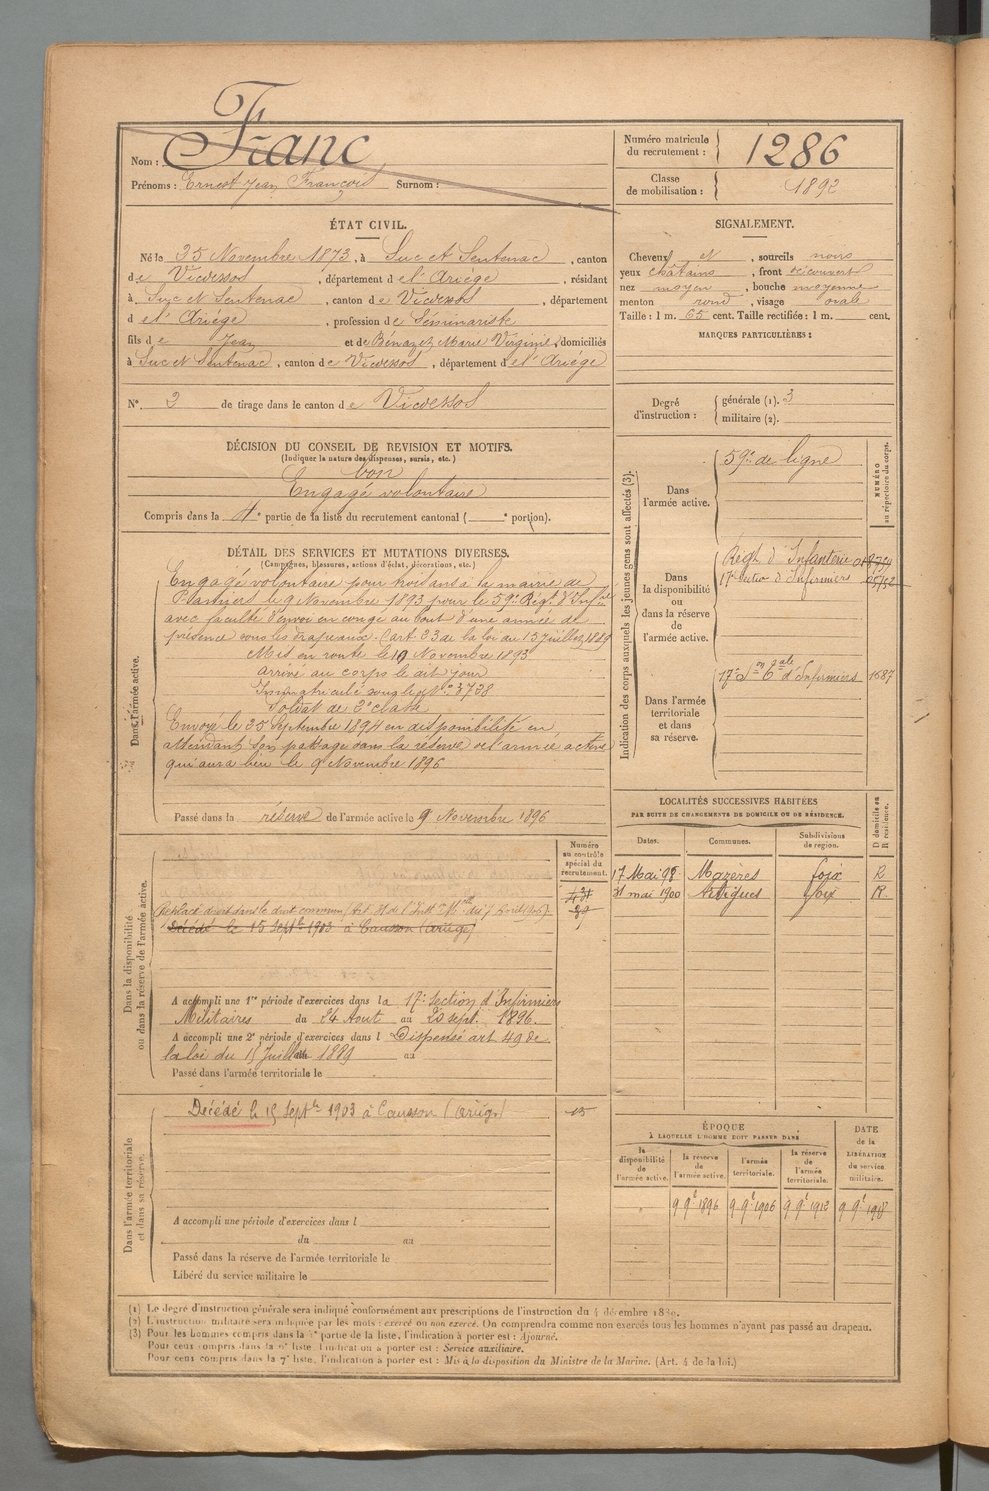 Nom : Franc
Prénoms : Ernest Jean François Surnom :
Numéro matricule du recrutement : 1286
Classe de mobilisation : 1892
ÉTAT CIVIL.
Né le 25 Novembre 1873, à Suc et Sentenac, canton
de Vicdessos, département de l'Ariége, résidant
à Suc et Sentenac, canton de Vicdessos, département
de l'Ariége, profession de Séminariste
fils de Jean et de Bénazet Marie Virginie, domiciliés
à Suc et Sentenac, canton de Vicdessos, département de l'Ariége
N° 2 de tirage dans le canton de Vicdessos
SIGNALEMENT.
Cheveux et, sourcils noirs
yeux châtains, front découvert
nez moyen, bouche moyenne
menton rond, visage ovale
Taille : 1 m. 65 cent. Taille rectifiée : 1 m. cent.
MARQUES PARTICULIÈRES :
Degré d'instruction : générale (1). 3
militaire (2).
DÉCISION DU CONSEIL DE REVISION ET MOTIFS.
(Indiquer la nature des dispenses, sursis, etc.)
bon
Engagé volontaire
Compris dans la partie de la liste du recrutement cantonal ( ° portion).
DÉTAIL DES SERVICES ET MUTATIONS DIVERSES.
(Campagnes, blessures, actions d'éclat, décorations, etc.)
Dans l'armée active.
Engagé volontaire pour trois ans à la mairie de
Pamiers le 9 Novembre 1893 pour le 59e Régt d'Infie
avec faculté d'envoi en congé au bout d'une année de
présence sous les drapeaux. (art. 23 de la loi du 15 Juillet 1889
Mis en route le 10 Novembre 1893
arrivé au corps le dit jour
Immatriculé sous le n° 3728
Soldat de 2e classe
Envoyé le 25 Septembre 1894 en disponibilité en
attendant son passage dans la réserve de l'armée active
qui aura lieu le 9 Novembre 1896
Passé dans la réserve de l'armée active le 9 Novembre 1896
Indication des corps auxquels les jeunes gens sont affectés (3).
NUMÉRO au répertoire du corps.
Dans l'armée active. 59e de ligne
Dans la disponibilité ou dans la réserve de l'armée active.
Régt d'Infanterie
17e Section d'Infirmiers
Dans l'armée territoriale et dans sa réserve.
17e Son Cale d'Infirmiers 1687
LOCALITÉS SUCCESSIVES HABITÉES
PAR SUITE DE CHANGEMENTS DE DOMICILE OU DE RÉSIDENCE.
Dates. Communes. Subdivisions de région. D domicile ou R résidence.
17 Mai 98 Mazères Foix R
31 mai 1900 Artigues Foix R
Dans la disponibilité ou dans la réserve de l'armée active.
Numéro au contrôle spécial du recrutement.
Décédé le 15 Septbre 1903 à Causson (Ariège)
A accompli une 1re période d'exercices dans la 17e Section d'Infirmiers
Militaires du 24 Aout au 20 sept. 1896.
A accompli une 2e période d'exercices dans l Dispensé art 49 de
la loi du 15 Juillet 1889 au
Passé dans l'armée territoriale le
Dans l'armée territoriale et dans sa réserve.
Décédé le 15 Septbre 1903 à Causson (Ariège)
A accompli une période d'exercices dans l
du au
Passé dans la réserve de l'armée territoriale le
Libéré du service militaire le
ÉPOQUE
À LAQUELLE L'HOMME DOIT PASSER DANS
la disponibilité de l'armée active.
la réserve de l'armée active.
l'armée territoriale.
la réserve de l'armée territoriale.
DATE de la LIBÉRATION du service militaire.
9 9e 1896 9 9e 1906 9 9e 1912 9 9e 1918
(1) Le degré d'instruction générale sera indiqué conformément aux prescriptions de l'instruction du 4 décembre
(2) L'instruction militaire sera indiquée par les mots : exercé ou non exercé. On comprendra comme non exercés tous les hommes n'ayant pas passé au drapeau.
(3) Pour les hommes compris dans la partie de la liste, l'indication à porter est : Ajourné.
Pour ceux compris dans la liste l'indication à porter est : Service auxiliaire.
Pour ceux compris dans la 7e liste, l'indication à porter est : Mis à la disposition du Ministre de la Marine. (Art. 4 de la loi.)